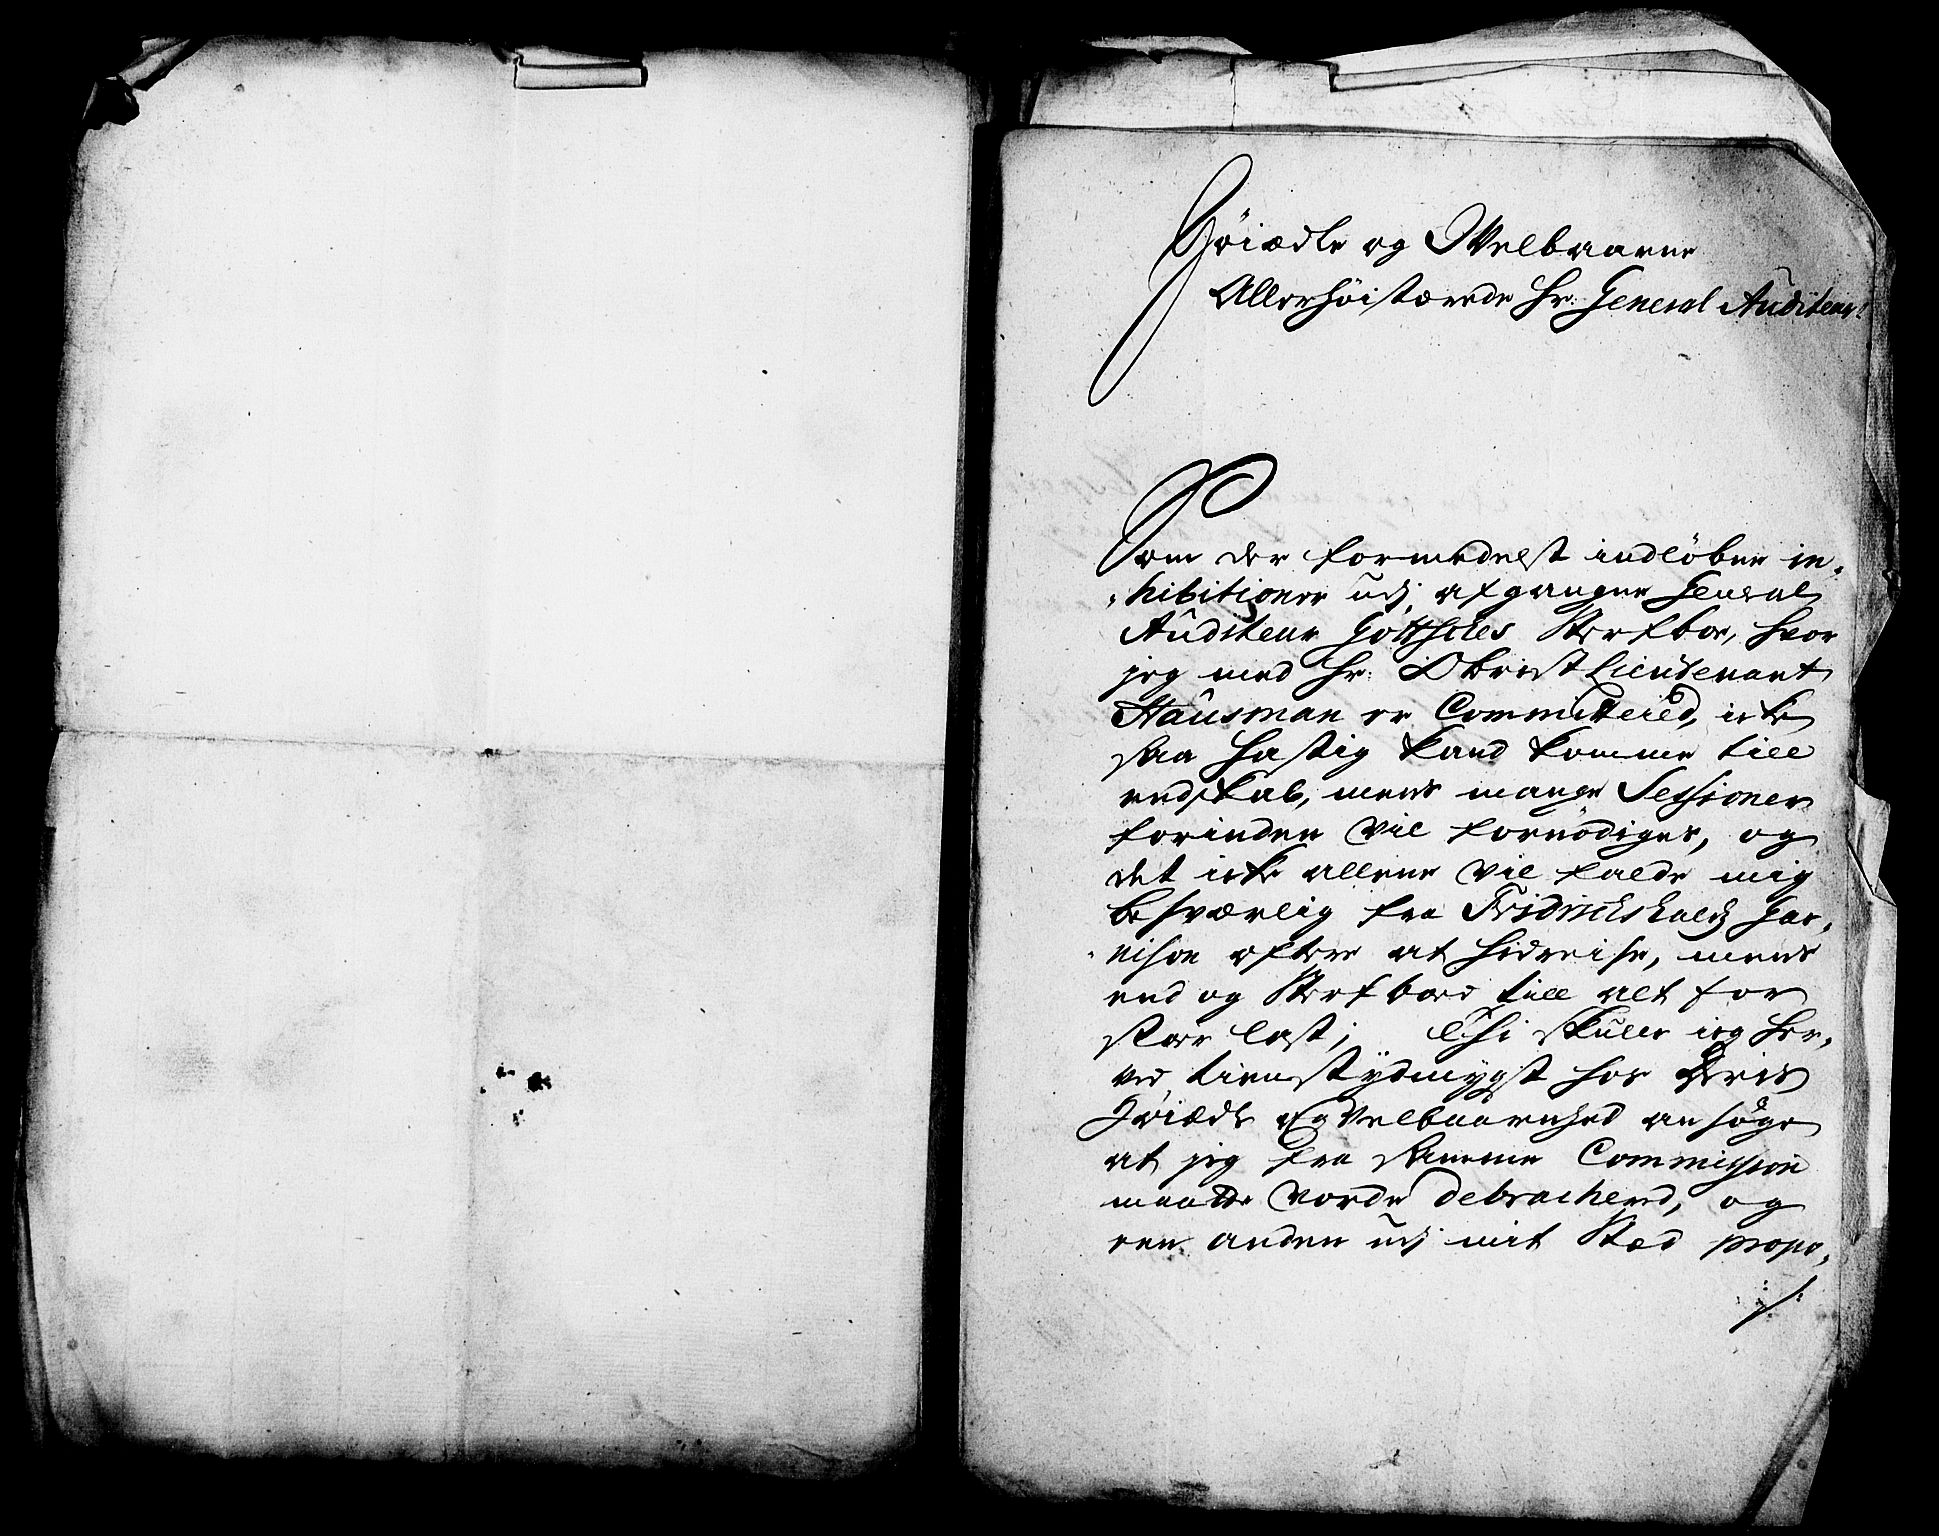 Høiædle og Welbaarne
Allerhöistærede Hr: General Auditeur!
Som der formedelst indlöbne in-
hibitioner udj afgangne General
Auditeur Gottsches Sterfboe, hvor
jeg med Hr: Obrist Lieutenant
Hausman er Committered, icke
saa hastig kand komme till
endskab, mens mange Sessioner
forinden vil fornödiges, og
det icke allene vil falde mig
besværlig fra Fridrichshalds Gar-
nison oftere at hidreise, mens
end og Sterfboed till alt for
stoer last; Thi skulle jeg her-
ved tienstydmygst hos Deris
Høiædle og Velbaarenhed ansöge
at jeg fra samme Commission
maatte vorde debracherd, og
een anden udj mit Stæd propo-